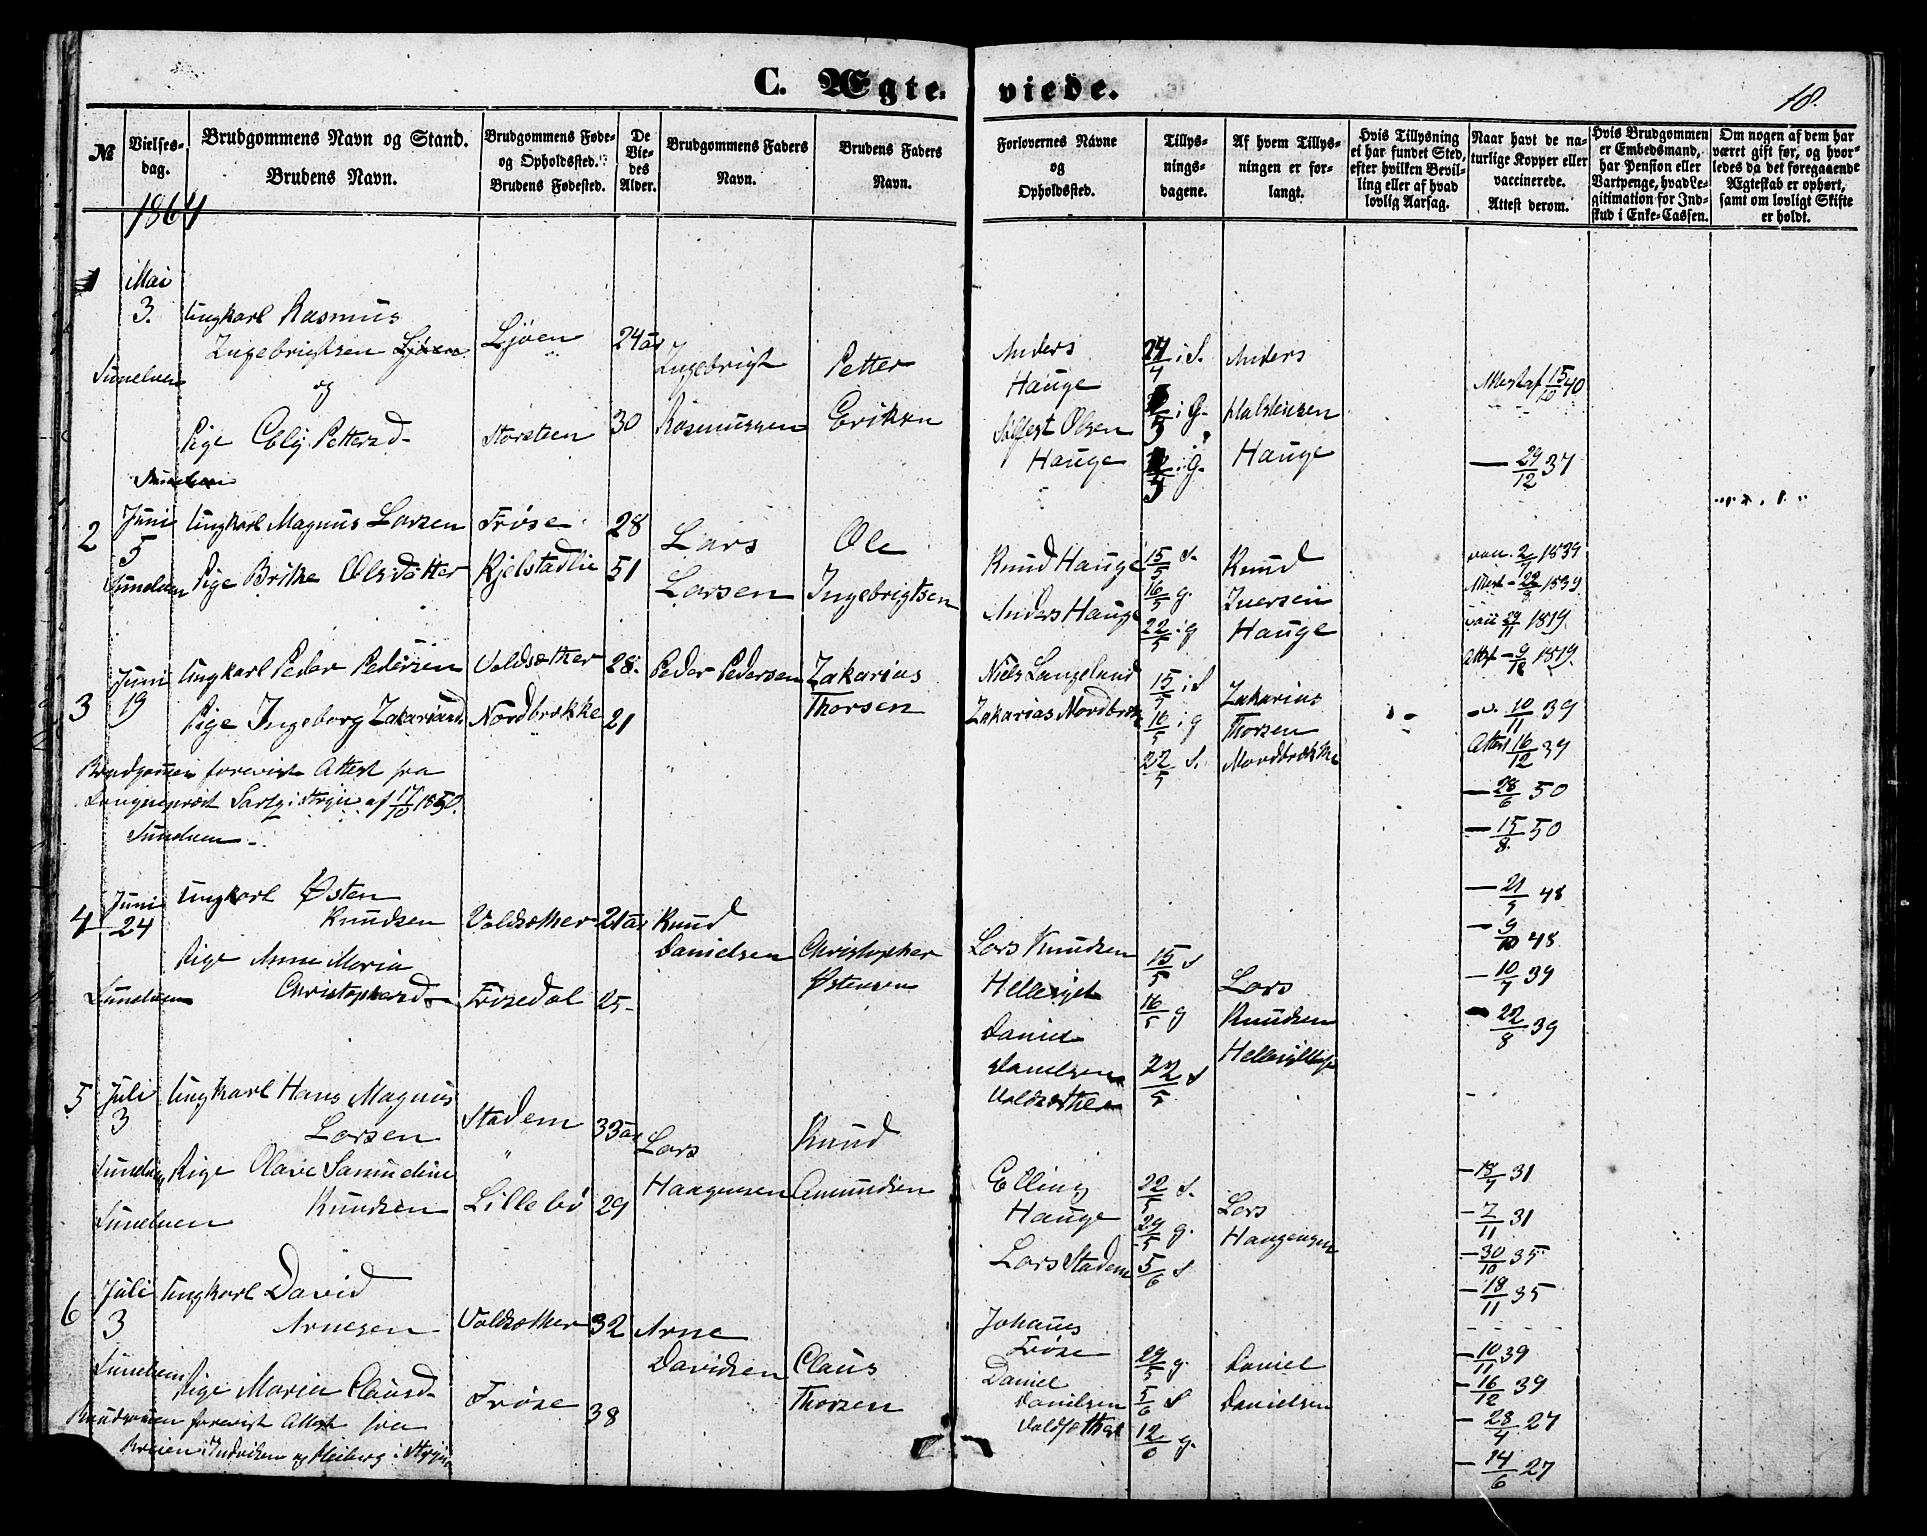 C. Ægteviede.
18.
№
Vielses-
dag.
Brudgommens Navn og Stand.
Brudens Navn.
Brudgommens Føde-
og Opholdssted.
Brudens Fødested.
De
Vie-
des
Alder.
Brudgommens Faders
Navn.
Brudens Faders
Navn.
Forlovernes Navne
og
Opholdssted.
Tillys-
nings-
dagene.
Af hvem Tillys-
ningen er for-
langt.
Hvis Tillysning
ei har fundet Sted,
efter hvilken Bevil-
ling eller af hvad
lovlig Aarsag.
Naar havt de na-
turlige Kopper eller
vaccinerede.
Attest derom.
Hvis Brudgommen
er Embedsmand,
har Pension eller
Vartpenge, hvad Le-
gitimation for Ind-
skud i Enke-Cassen.
Om nogen af dem har
været gift før, og hvor-
ledes da det foregaaende
Ægteskab er ophørt,
samt om lovligt Skifte
er holdt.
1864
1 Mai 3. Ungkarl Rasmus
Ingebrigtsen Ljøen Ljøen 24 aar Ingebrigt Rasmussen
Sunelven
og
Pige Pettersd Storsteen 30 Petter Eriksen
Anders
Hauge
Olsen
Hauge
24/4 i S.
i G.
i G.
Anders
Halstensen
Hauge
15/10 40
29/12 37
2 Juni 5 Ungkarl Magnus Larsen Frøse 28 Lars Larsen
Sunelven Pige Brithe Olsdatter Kjelstadlie 51 Ole Ingebrigtsen
Knud Hauge
Anders Hauge
15/5 S.
16/5 g.
22/5 i g
Knud
Iversen
Hauge
1839
1839
1819
Attest 9/12 1819
3 Juni 19 Ungkarl Peder Pedersen Voldsæther 28. Peder Pedersen
Pige Ingeborg Zakariasd Nordbrække 21 Zakarias Thorsen
Niels Langeland
Zakarias Nordbræk
15/5 i S
16/5 i g
22/5 S.
Zakarias
Thorsen
Nordbrække
10/11 39
Attest 16/12 39
28/6 50
15/8 50
Brudgommen forevist Attest fra
Sogneprest i Stryn af 17/10 1850.
Sunelven
4 Juni 24 Ungkarl Østen
Knudsen Voldsæther 21 aar Knud Danielsen
Pige Anne Maria
Sunelven Christophersd Frøsedal 25 Christopher Østensen
Lars Knudsen
Hellesylt
Daniel
Danielsen
Voldsæther
15/5 S
16/5 g
22/5 S
Lars
Knudsen
Hellesylt
21/5 48
9/10 48
10/7 39
22/8 39
5 Juli 3 Ungkarl Hans Magnus
Larsen Stadem 33 aar Lars Haagensen
Sunelven Pige Olave Samueline
Sunelven Knudsen Lillebø 29 Knud Amundsen
Elling
Hauge
Lars Stadem
22/5 S.
29/5 g.
5/6 S
Lars
Haagensen
18/7 31
7/11 31
30/10 35
18/11 35
6 Juli 3 Ungkarl David
Arnesen Voldsæther 32 Arne Davidsen
Sunelven
Pige Maria Clausd Frøse 38 Claus Thorsen
Brudgommen forevist Attest fra
Breien i Indviken og Heiberg i Stryn
Johannes
Frøse
Daniel
Danielsen
Voldsæther
29/5 g.
5/6 S
12/6 g.
Daniel
Danielsen
10/11 39
16/12 39
28/4 27
14/6 27